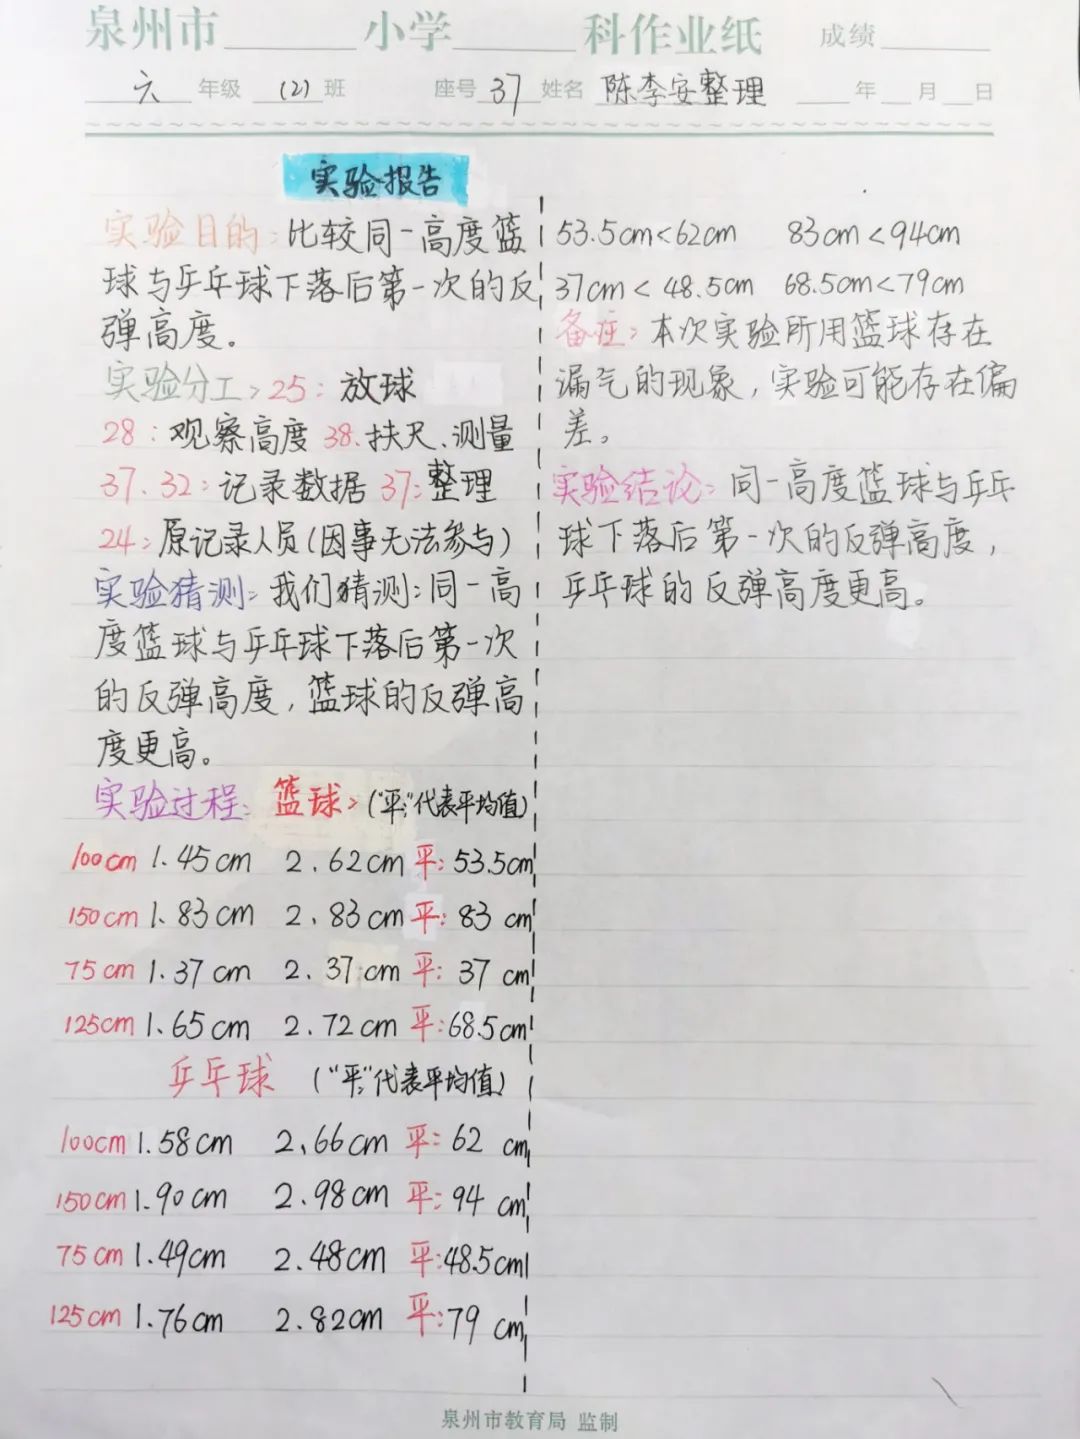 泉州市______小学______科作业纸 成绩______
六 年级 (2) 班 座号 37 姓名 陈李安整理 ___年___月___日
实验报告
实验目的:比较同一高度篮
球与乒乓球下落后第一次的反
弹高度。
实验分工:25:放球
28:观察高度 38.扶尺、测量
37、32:记录数据 37:整理
24:原记录人员(因事无法参与)
实验猜测:我们猜测:同一高
度篮球与乒乓球下落后第一次
的反弹高度,篮球的反弹高
度更高。
实验过程:篮球:("平:"代表平均值)
100cm 1.45cm 2.62cm 平:53.5cm
150cm 1.83cm 2.83cm 平:83cm
75cm 1.37cm 2.37cm 平:37cm
125cm 1.65cm 2.72cm 平:68.5cm
乒乓球 ("平:"代表平均值)
100cm 1.58cm 2.66cm 平:62cm
150cm 1.90cm 2.98cm 平:94cm
75cm 1.49cm 2.48cm 平:48.5cm
125cm 1.76cm 2.82cm 平:79cm
53.5cm<62cm 83cm<94cm
37cm<48.5cm 68.5cm<79cm
备注:本次实验所用篮球存在
漏气的现象,实验可能存在偏
差。
实验结论:同一高度篮球与乒乓
球下落后第一次的反弹高度,
乒乓球的反弹高度更高。
泉州市教育局 监制